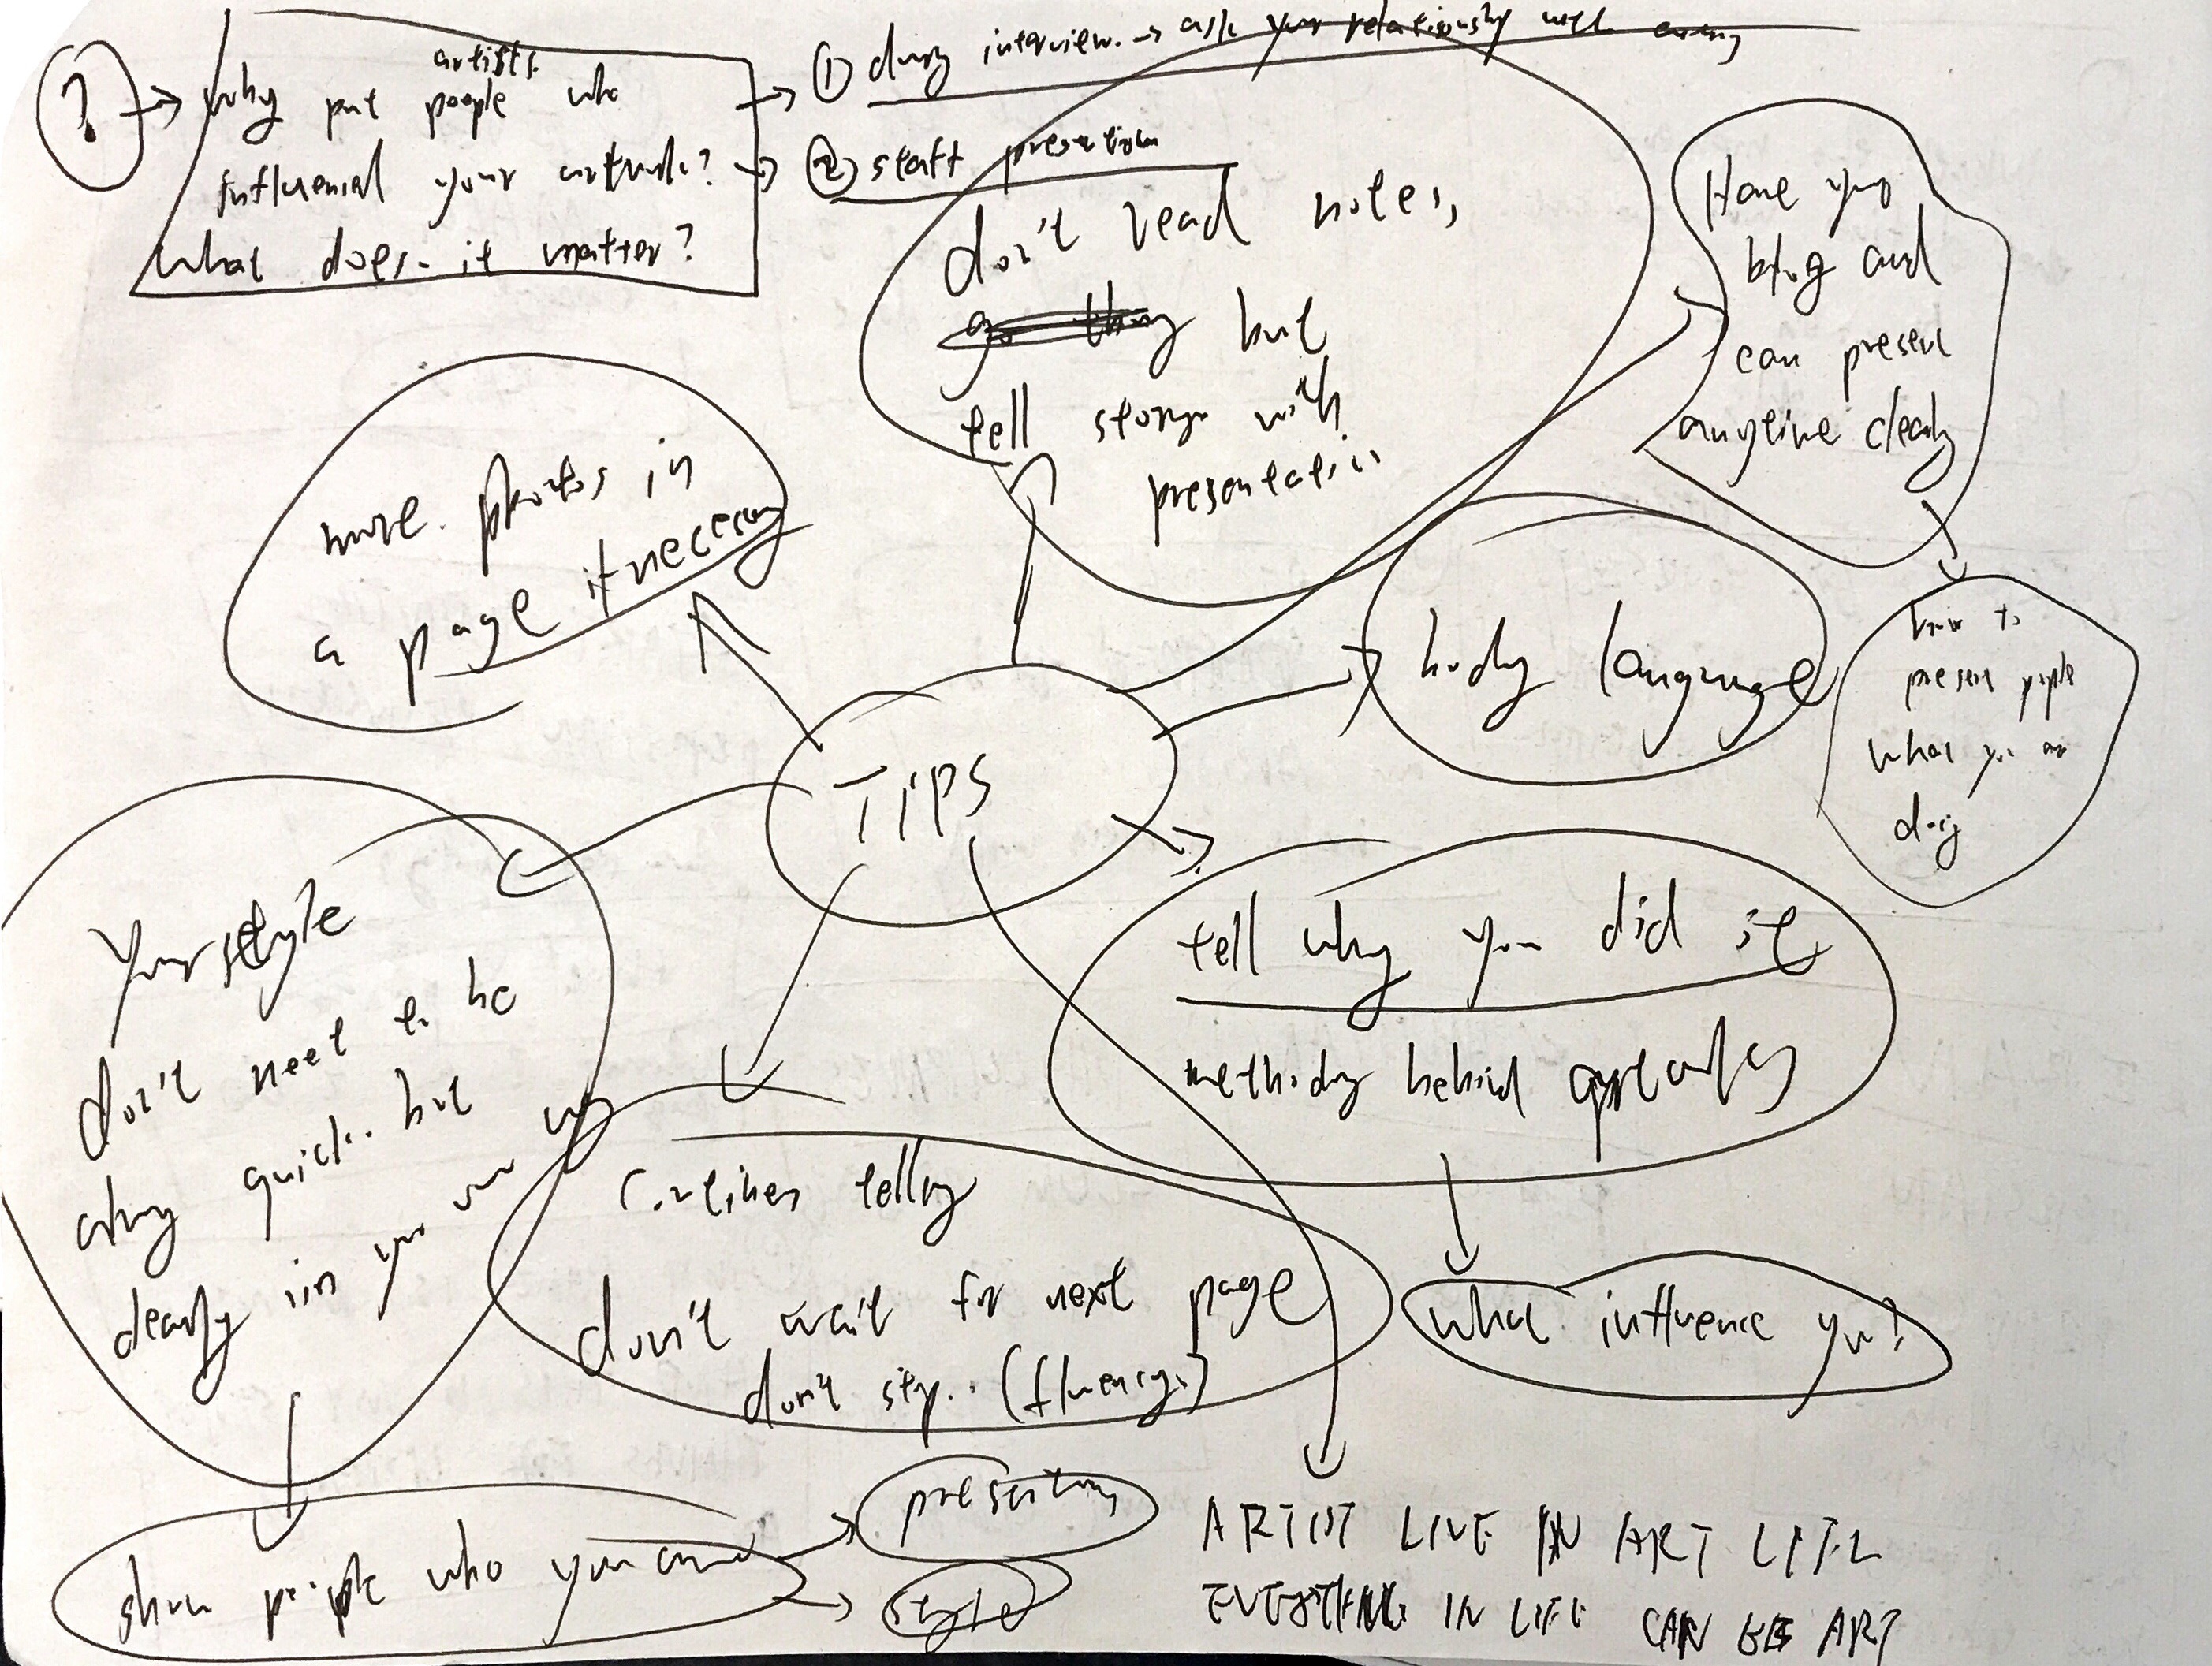 ?
artists.
why put people who
influencial your artwork?
what does it matter?
① during interview. → ask your relationship with
② staff presentation
don't read notes,
but
tell story with
presentation
Have your
blog and
can present
anytime clearly
how to
present people
what you are
doing
more photos in
a page if necessary
body language
TIPS
Your style
don't need to be
quick. but
clearly in your own way
tell why you did it
behind
what influence you?
telling
don't wait for next page
don't stop.. (fluency.)
show people who you are
style
ARTIST LIVE IN ART LIFE
EVERYTHING IN LIFE CAN BE ART